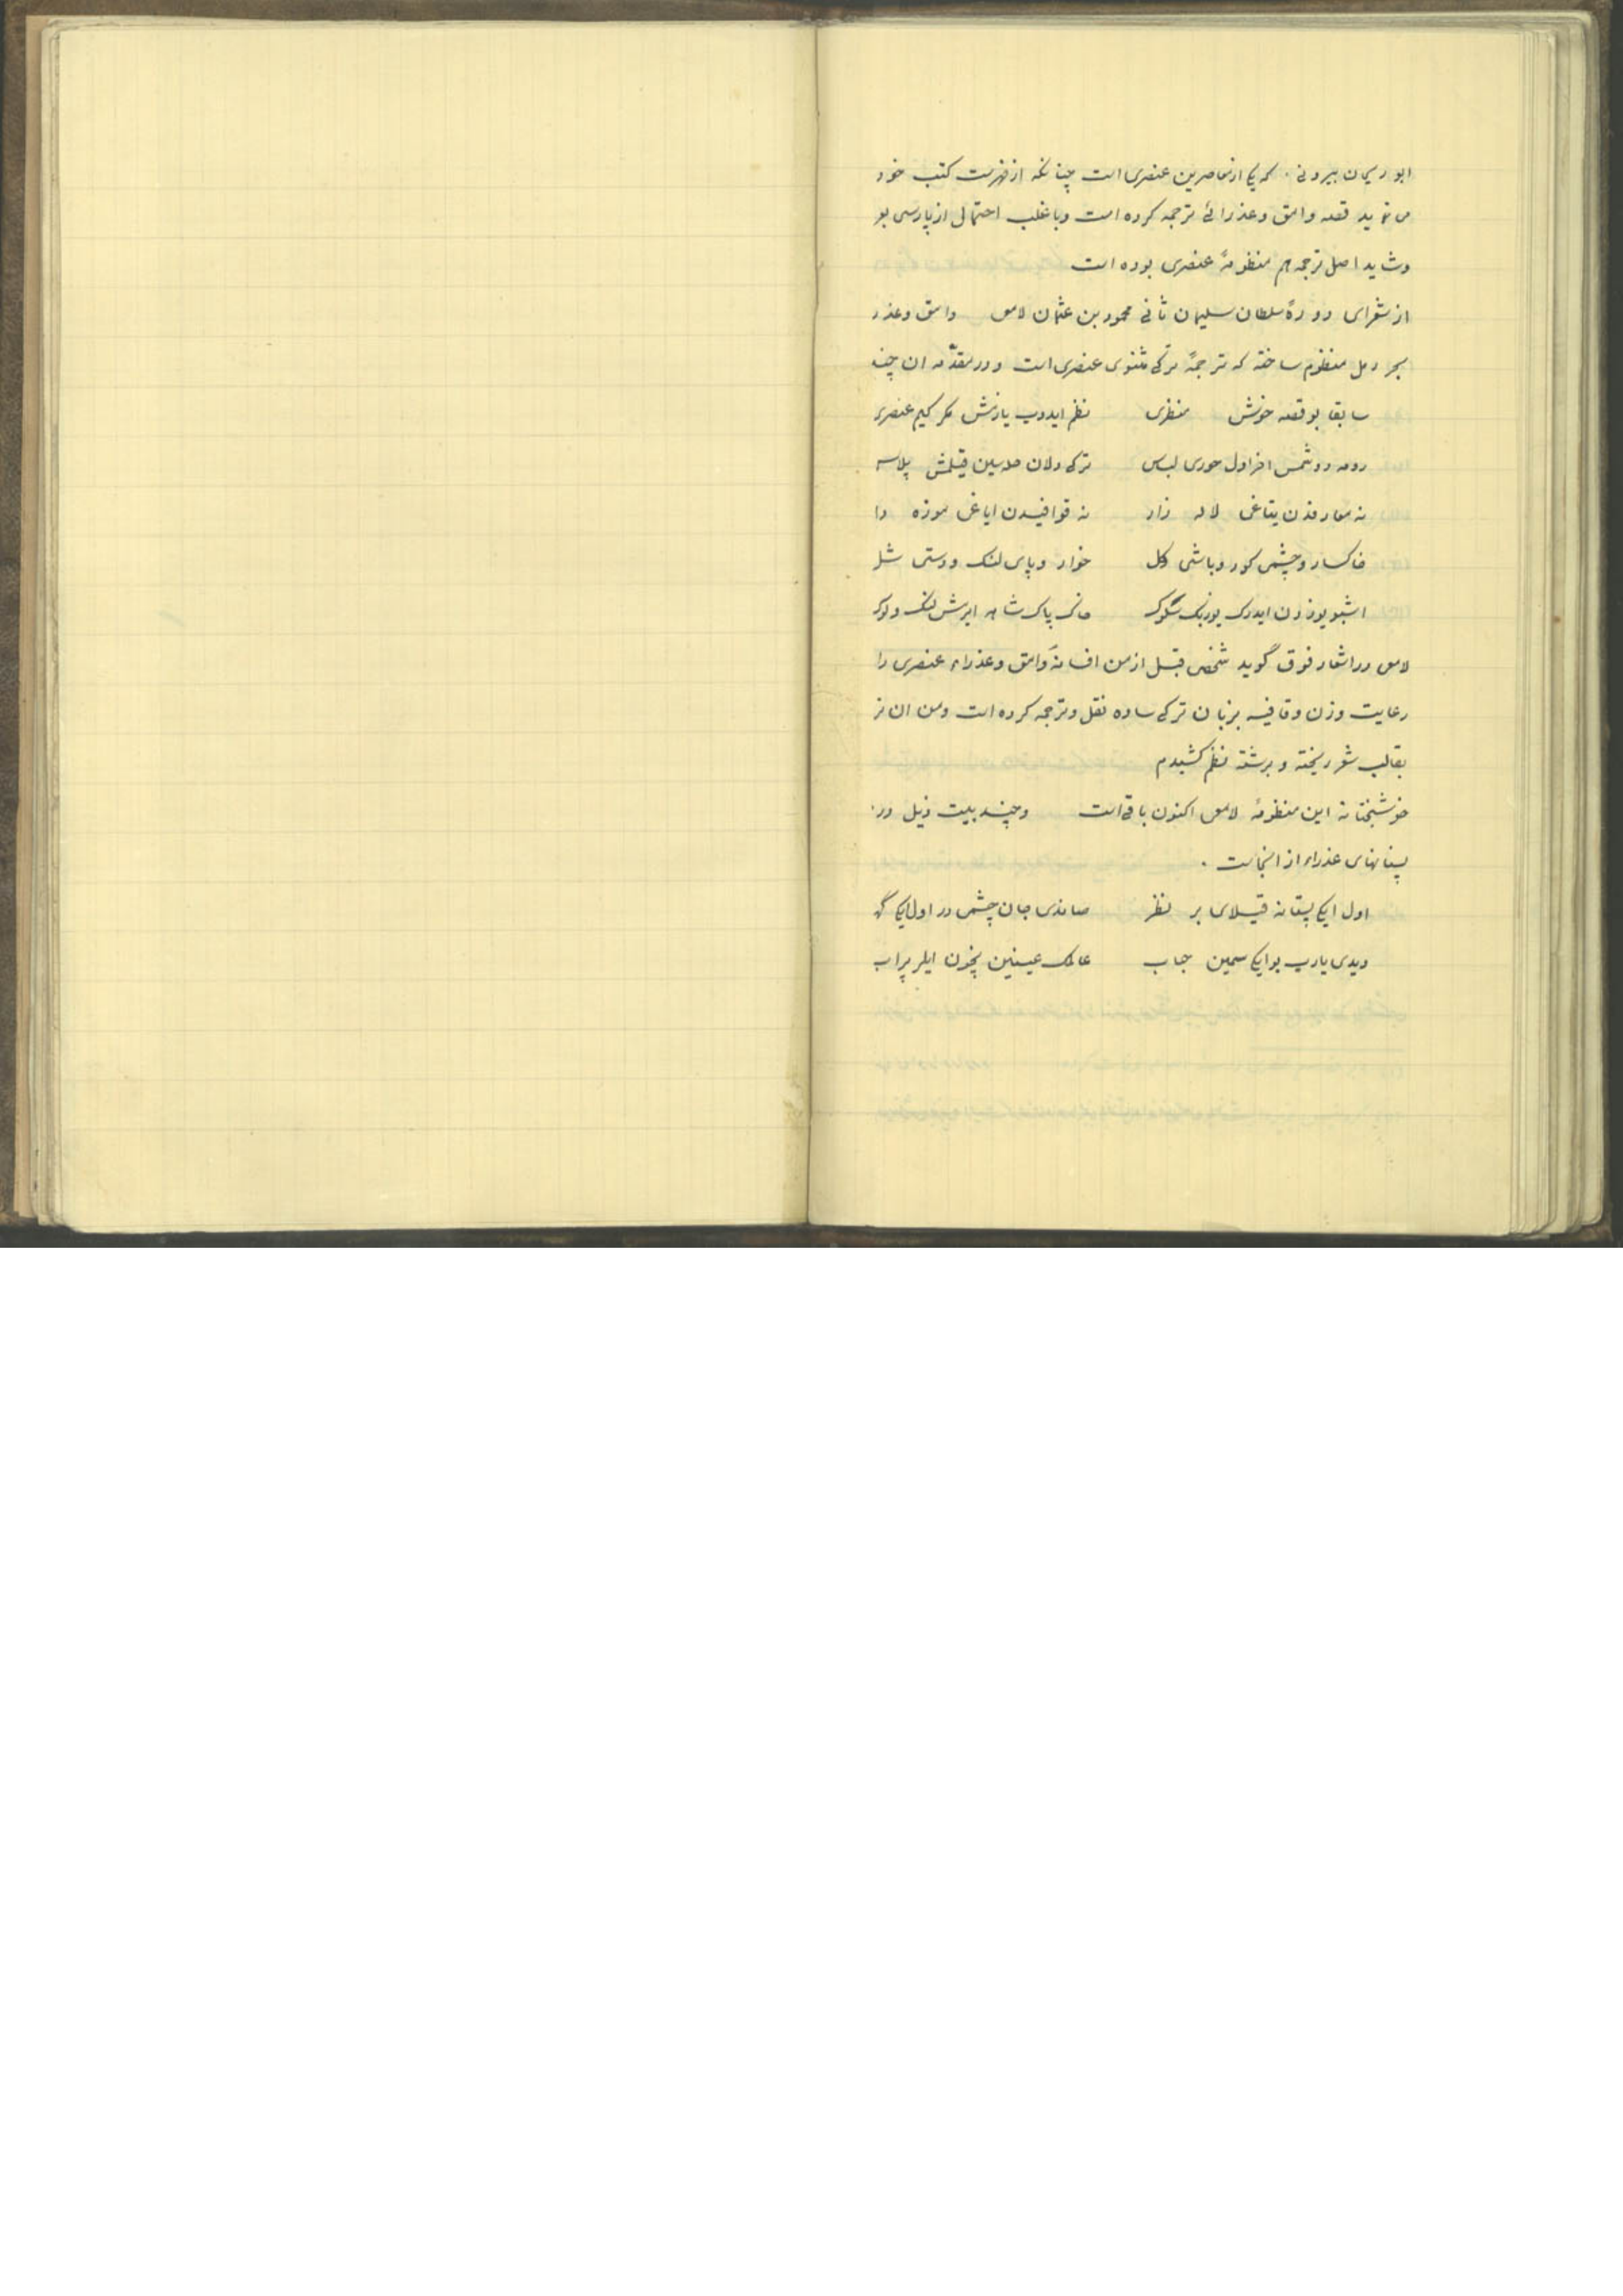 ابوریحان بیرونی . که یکی از معاصرین عنصری است چنانکه از فهرست کتب خود
می نماید قصه وامق و عذرائی ترجمه کرده است و باغلب احتمال از پارسی بو
و شاید اصل ترجمه هم منظومهٔ عنصری بوده است
از شعرای دورهٔ سلطان سلیمان ثانی محمود بن عثمان لامعی وامق و عذر
ببحر رمل منظوم ساخته که ترجمهٔ ترکی مثنوی عنصری است و در مقدّمه ان چن
سابقا بو قصه خوش منظری نظم ایدوب یازمش مکر کیم عنصری
رومه دوشمس اخر اول حوری لباس ترکی دلان قیلمش پلاس
نه معارفدن یتاغی لاله زار نه قوافیدن ایاغی موزه دا
خاکسار و چشمی کور و باشی کل خوار و پای لنک و دستی شل
اشبو یوزدن ایدرک یوریک سکوک پاک شاه ابرش لنک ولوک
لامعی در اشعار فوق گوید شخصی قبل از من افسانهٔ وامق و عذراء عنصری را
رعایت وزن و قافیه بزبان ترکی ساده نقل و ترجمه کرده است و من ان نز
بقالب شعر ریخته و برشته نظم کشیدم
خوشبختانه این منظومهٔ لامعی اکنون باقی است و چند بیت ذیل در
پستانهای عذراء از انجاست .
اول ایکی پستانه قیلدی بر نظر صاندی جان چشمی در اول ایکی گهر
دیدی یارب بو ایکی سیمین حباب عالمک عینین یچون ایلر پراب